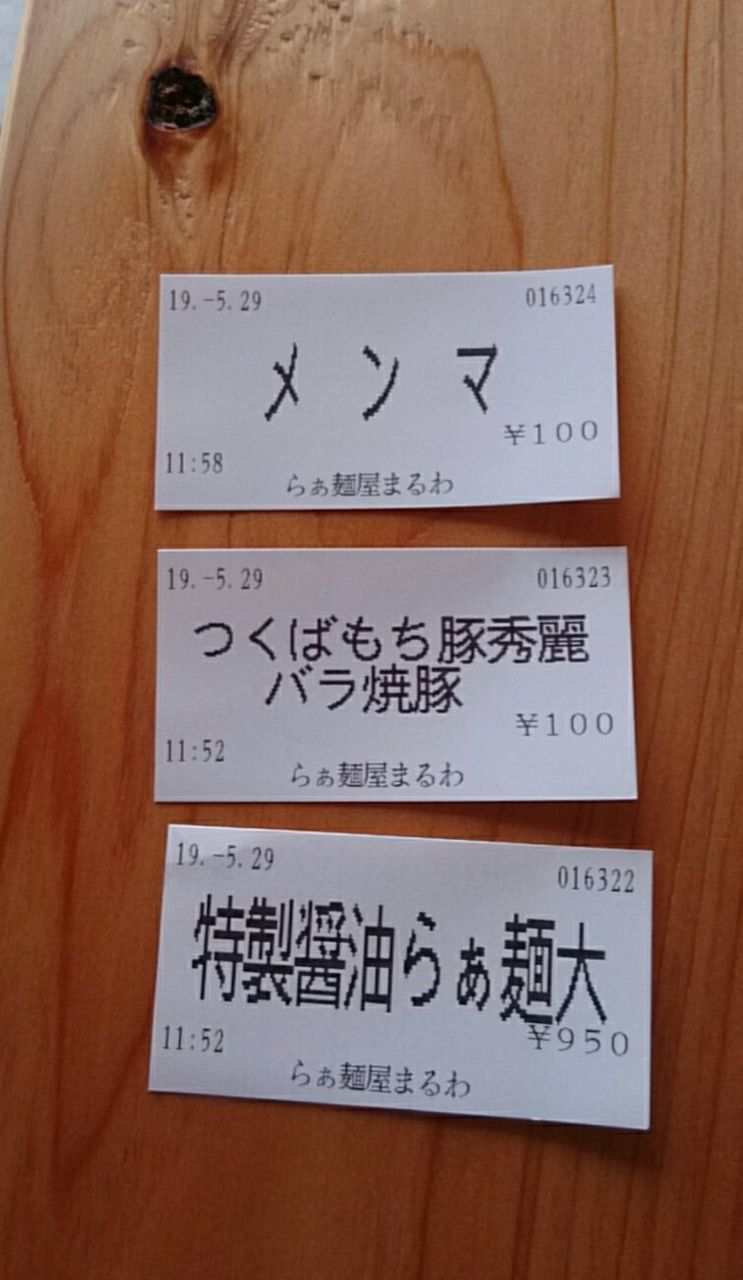 19.-5.29 016324
メンマ
¥100
11:58
らぁ麺屋まるわ
19.-5.29 016323
つくばもち豚秀麗
バラ焼豚
¥100
11:52
らぁ麺屋まるわ
19.-5.29 016322
特製醤油らぁ麺大
¥950
11:52
らぁ麺屋まるわ